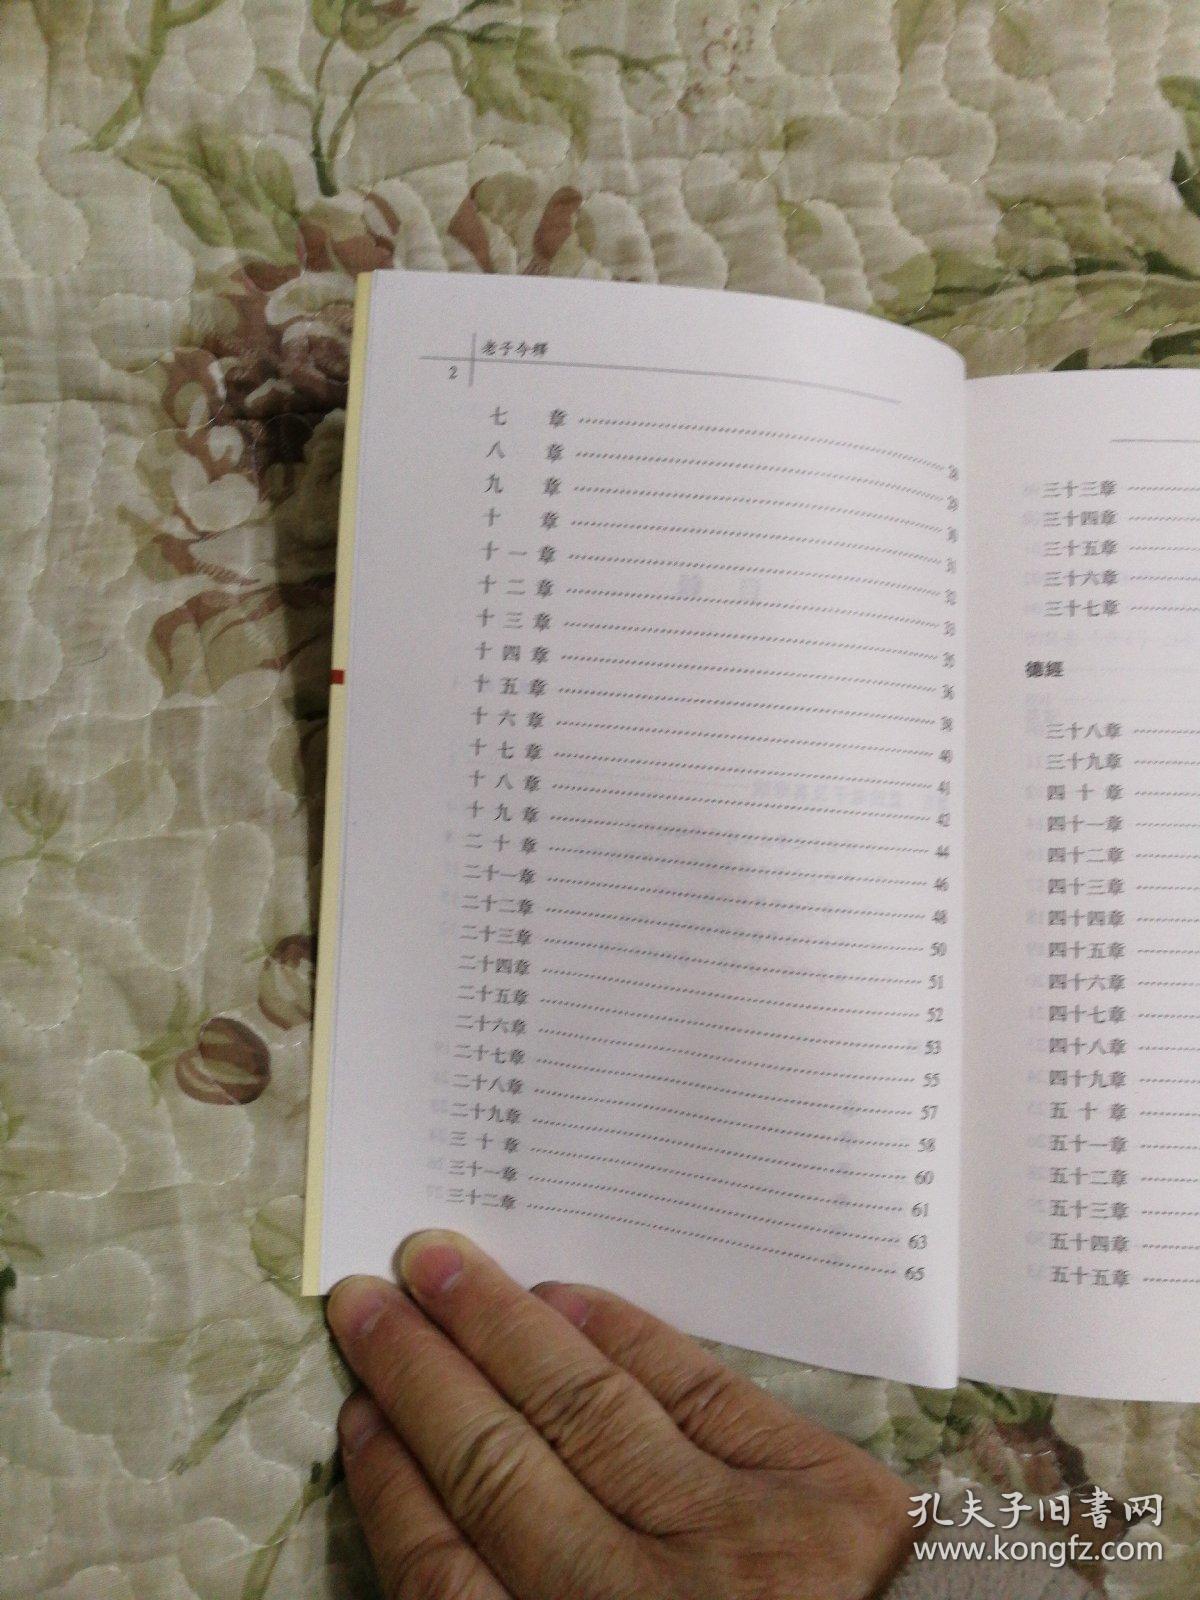 老子今释
2
七 章
八 章
九 章
十 章
十一章 31
十二章 32
十三章 33
十四章 35
十五章 36
十六章 38
十七章 40
十八章 41
十九章 42
二十章 44
二十一章 46
二十二章 48
二十三章 50
二十四章 51
二十五章 52
二十六章 53
二十七章 55
二十八章 57
二十九章 58
三十章 60
三十一章 61
三十二章 63
65
三十三章
三十四章
三十五章
三十六章
三十七章
德經
三十八章
三十九章
四十章
四十一章
四十二章
四十三章
四十四章
四十五章
四十六章
四十七章
四十八章
四十九章
五十章
五十一章
五十二章
五十三章
五十四章
五十五章
孔夫子旧书网
www.kongfz.com